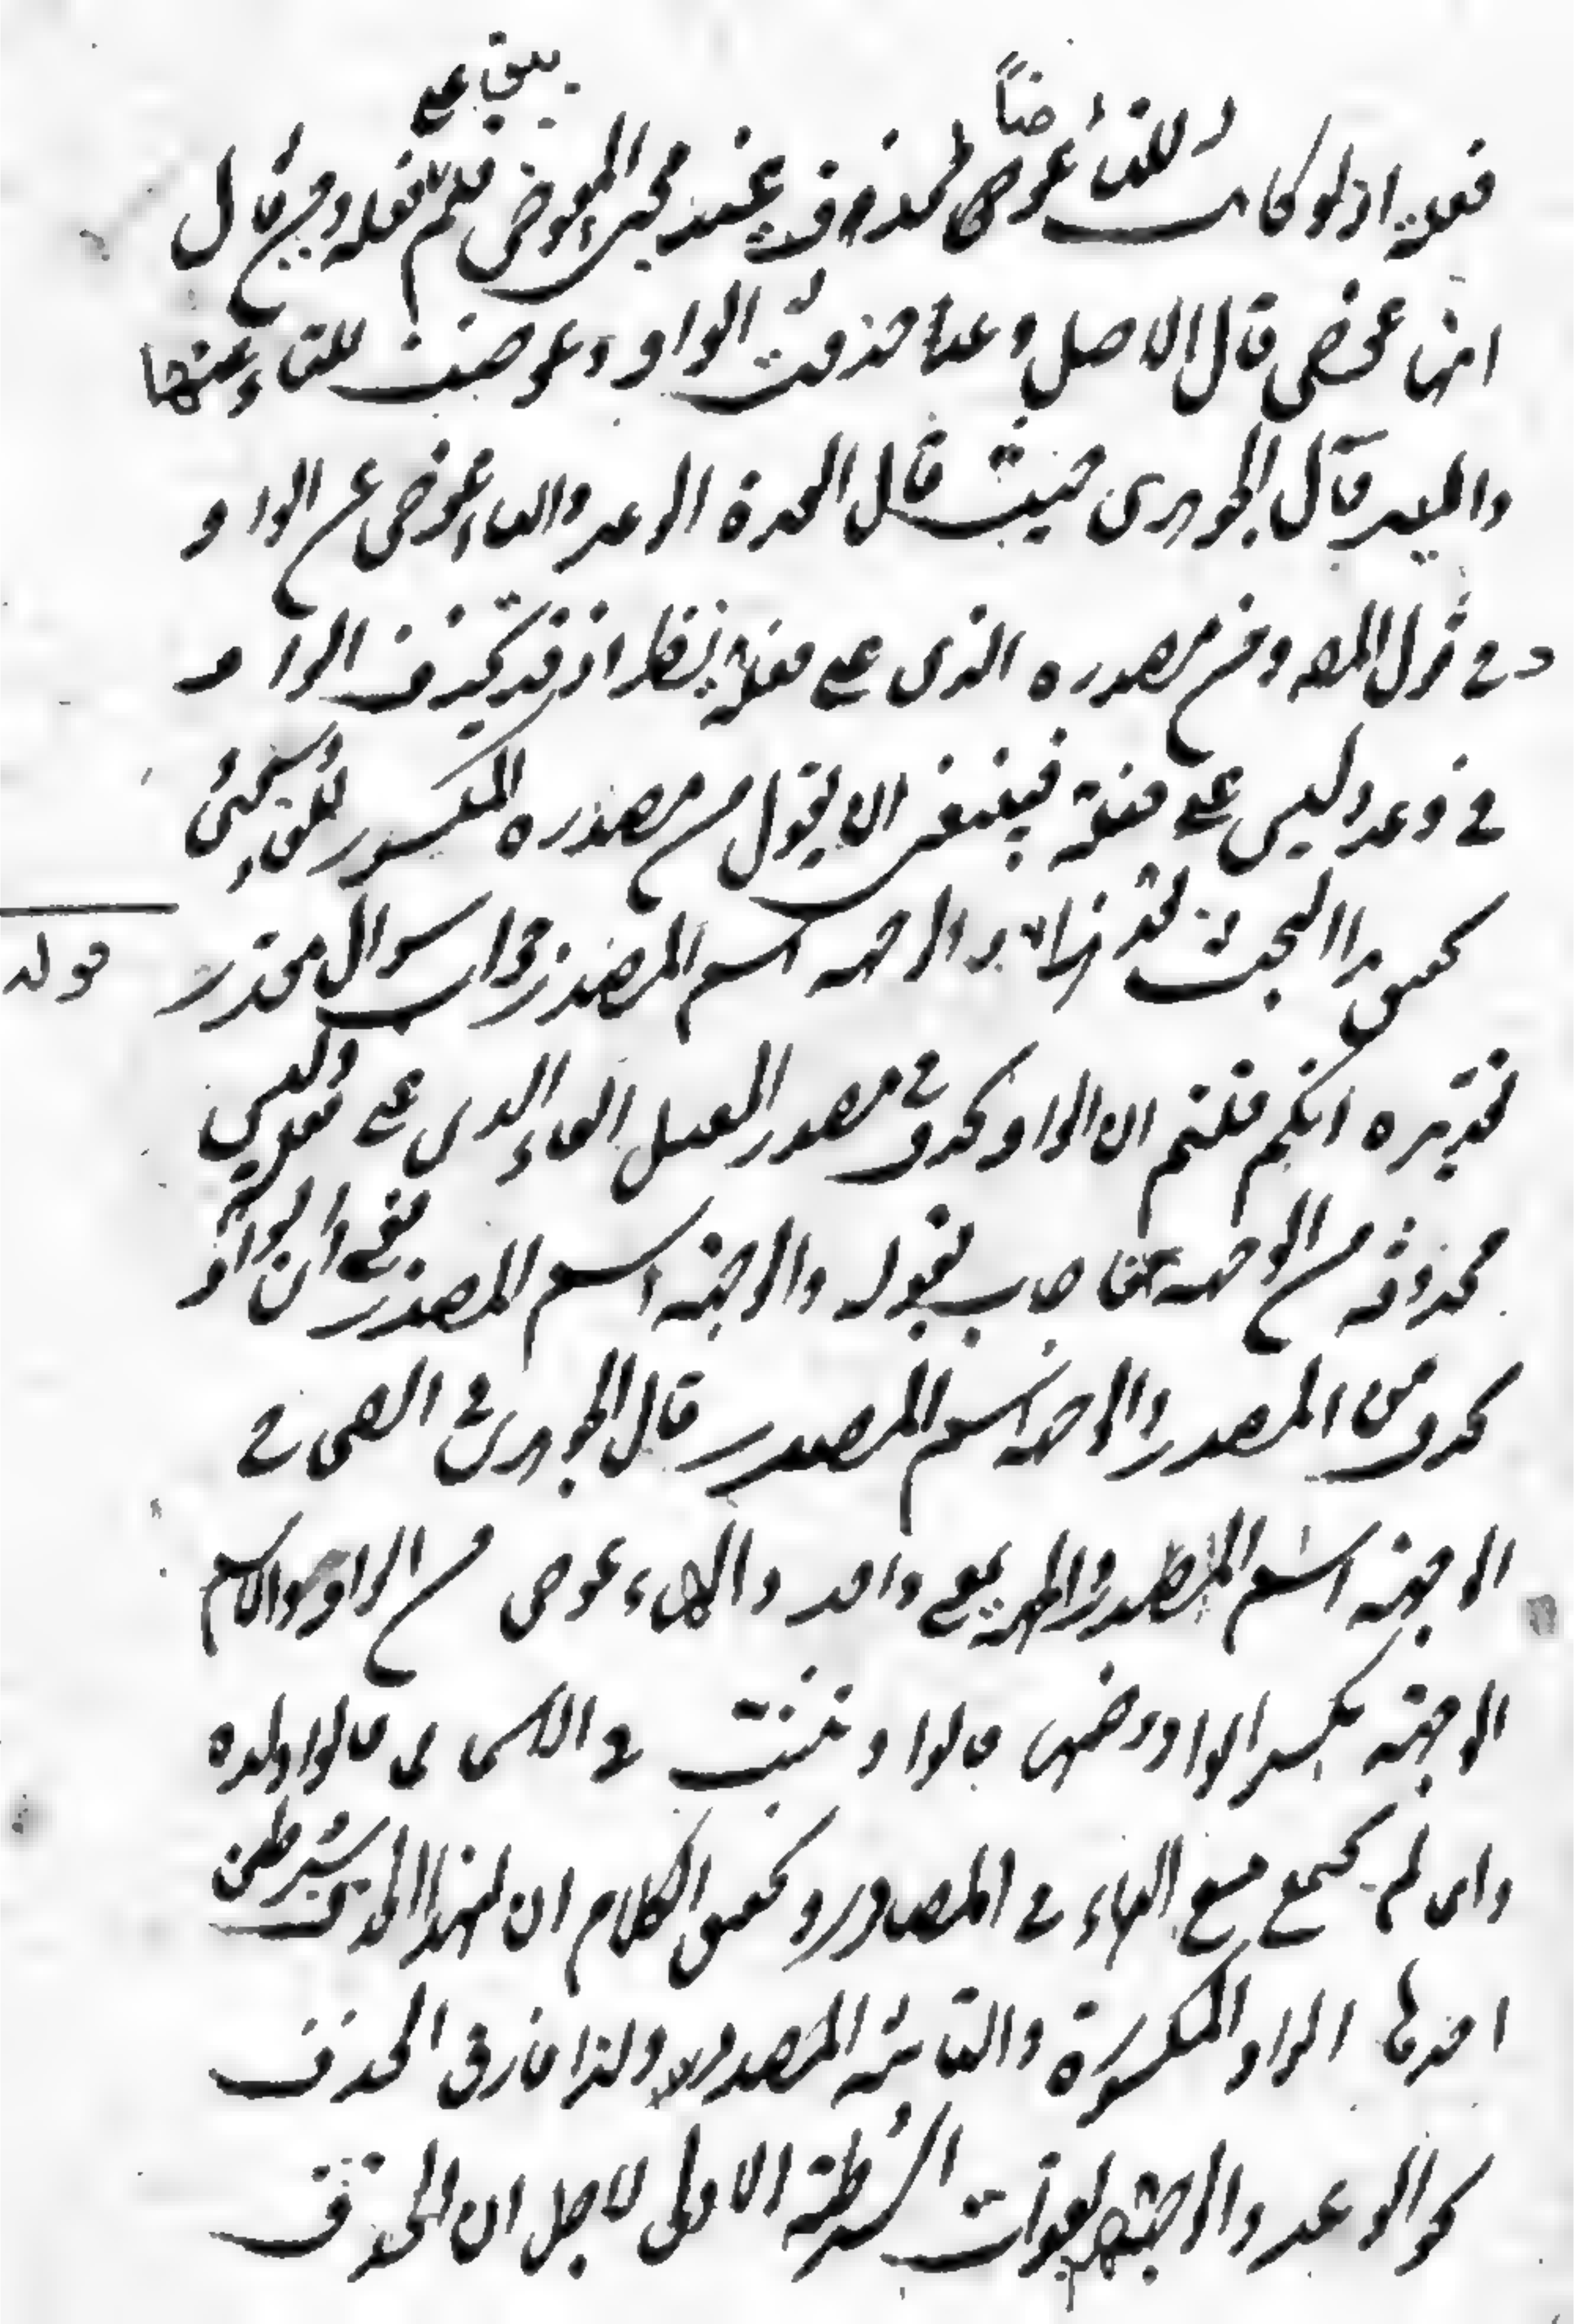 فعلة اذ لو كانت التاء عوضاً لمحذوف عند مجئ المعوض فلم يبق على فعله ومن قال
انها عوض قال الاصل وعد حذفت الواو وعوضت التاء عنها
واليه قال الجوهرى حيث قال العدة الوعد والهاء عوض عن الواو
وفى قول المص ومن مصدره الذى على فعلة نظر اذ قد تحذف الواو
فى وعد وليس على فعلة فينبغى ان يقول من مصدره المكسور الفاء وسيجئ
تحقيق هذا البحث والوجهة اسم المصدر جواب سوال مقدر
قوله
تقديره انكم قلتم ان الواو تحذف فى مصدر المعتل الفاء الذى على فعلة وليس
محذوفة من الوجهة فاجاب بقوله والوجهة اسم المصدر يعنى ان الواو
تحذف من المصدر والوجهة اسم المصدر قال الجوهرى فى الصحاح
الوجهة اسم المصدر والجهة بمعنى واحد والهاء عوض من الواو والاسم
الوجهة بكسر الواو وضمها والواو تثبت فى الاسماء كما قالوا ولدة
وان لم تجمع مع الهاء فى المصادر وتحقيق الكلام ان لهذا الحذف شرطين
احدها الواو المكسورة والثانية المصدرية ولذا فارق الحذف
نحو الوعد والوجهة لفوات الشرطية الاولى لاجل ان الحذف